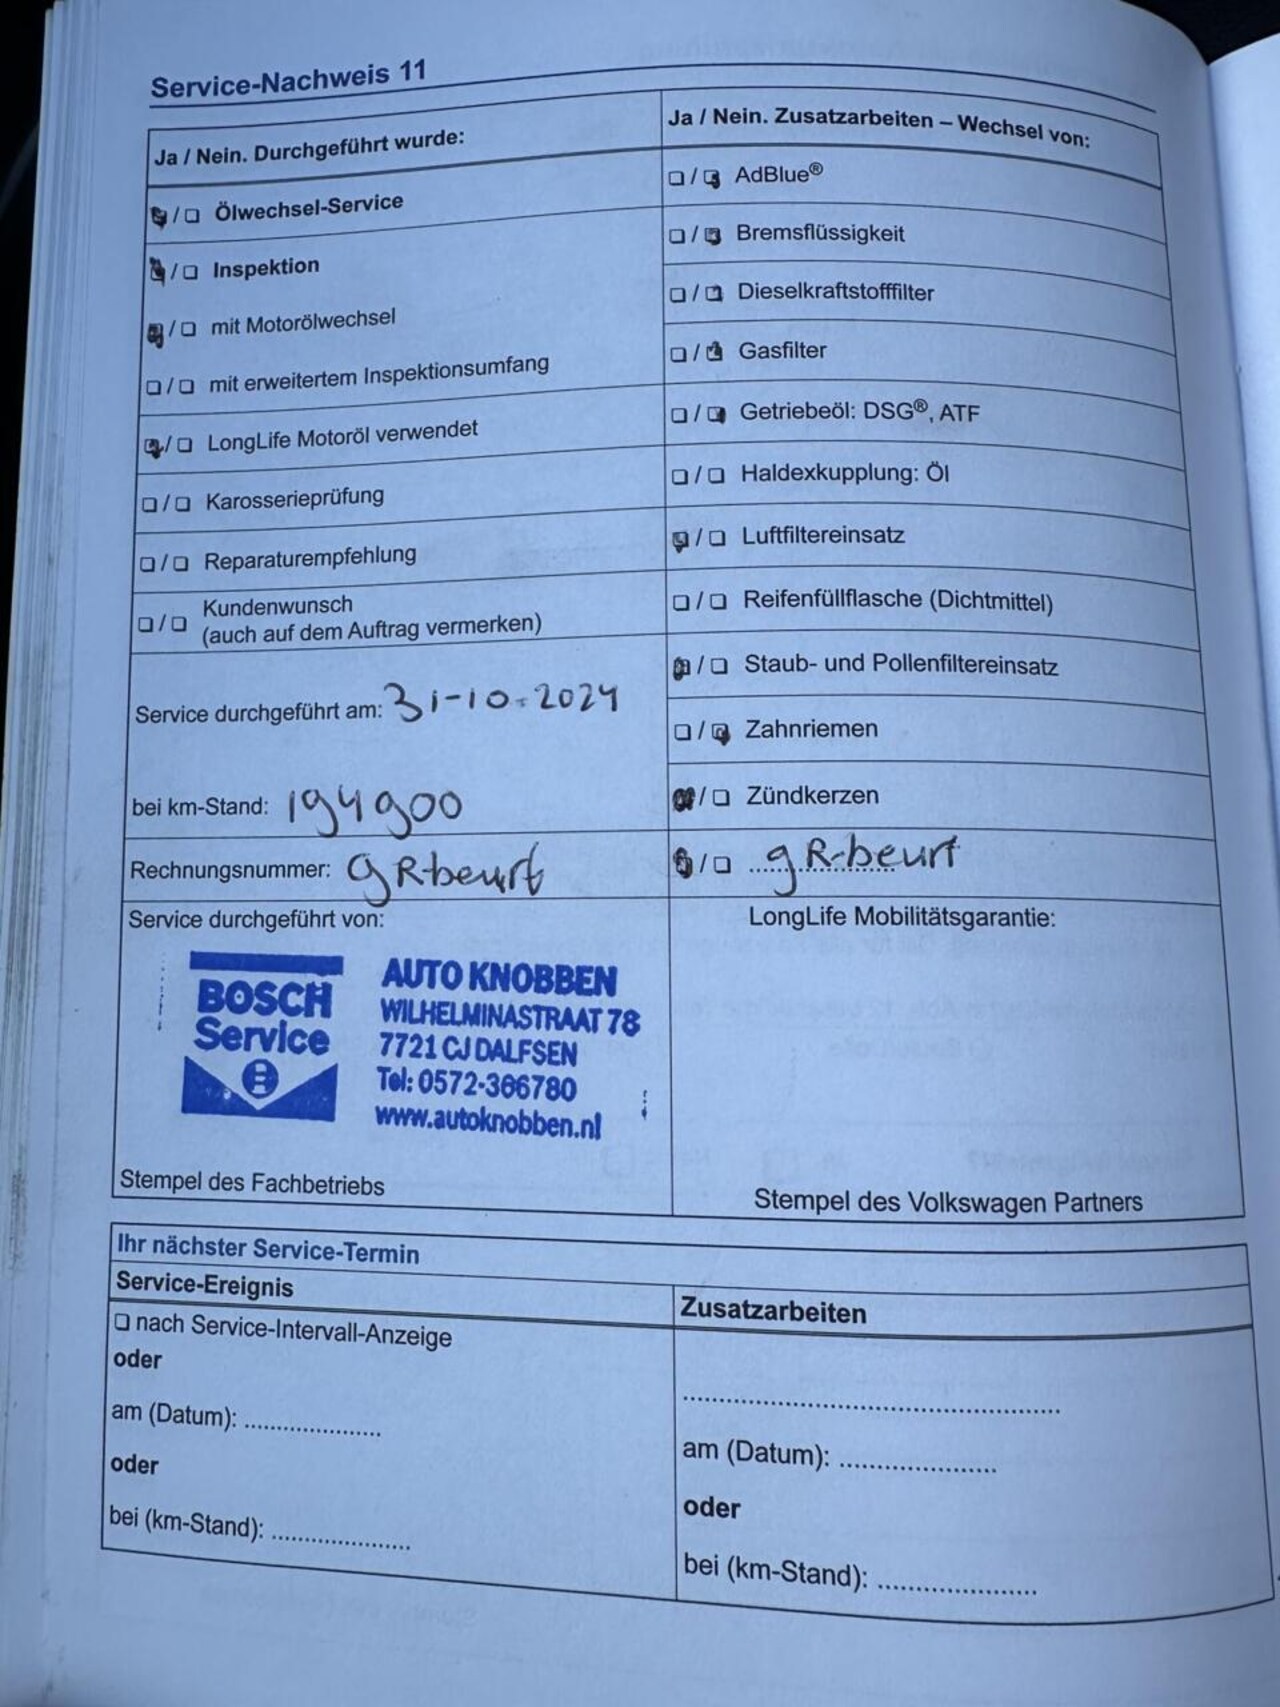 Service-Nachweis 11
Ja / Nein. Durchgeführt wurde:
Ölwechsel-Service
Inspektion
mit Motorölwechsel
mit erweitertem Inspektionsumfang
LongLife Motoröl verwendet
Karosserieprüfung
Reparaturempfehlung
Kundenwunsch
(auch auf dem Auftrag vermerken)
Service durchgeführt am: 31-10-2024
bei km-Stand: 194900
Rechnungsnummer: gR-beurt
Service durchgeführt von:
BOSCH
Service
AUTO KNOBBEN
WILHELMINASTRAAT 78
7721 CJ DALFSEN
Tel: 0572-366780
www.autoknobben.nl
Stempel des Fachbetriebs
Ja / Nein. Zusatzarbeiten – Wechsel von:
AdBlue®
Bremsflüssigkeit
Dieselkraftstofffilter
Gasfilter
Getriebeöl: DSG®, ATF
Haldexkupplung: Öl
Luftfiltereinsatz
Reifenfüllflasche (Dichtmittel)
Staub- und Pollenfiltereinsatz
Zahnriemen
Zündkerzen
gR-beurt
LongLife Mobilitätsgarantie:
Stempel des Volkswagen Partners
Ihr nächster Service-Termin
Service-Ereignis
nach Service-Intervall-Anzeige
oder
am (Datum): .....................
oder
bei (km-Stand): .....................
Zusatzarbeiten
..........................................................
am (Datum): .....................
oder
bei (km-Stand): .....................